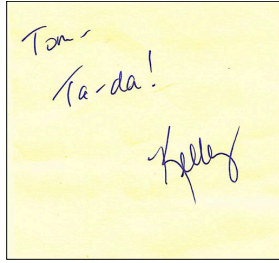 Tom-
Ta-da!
Kelley